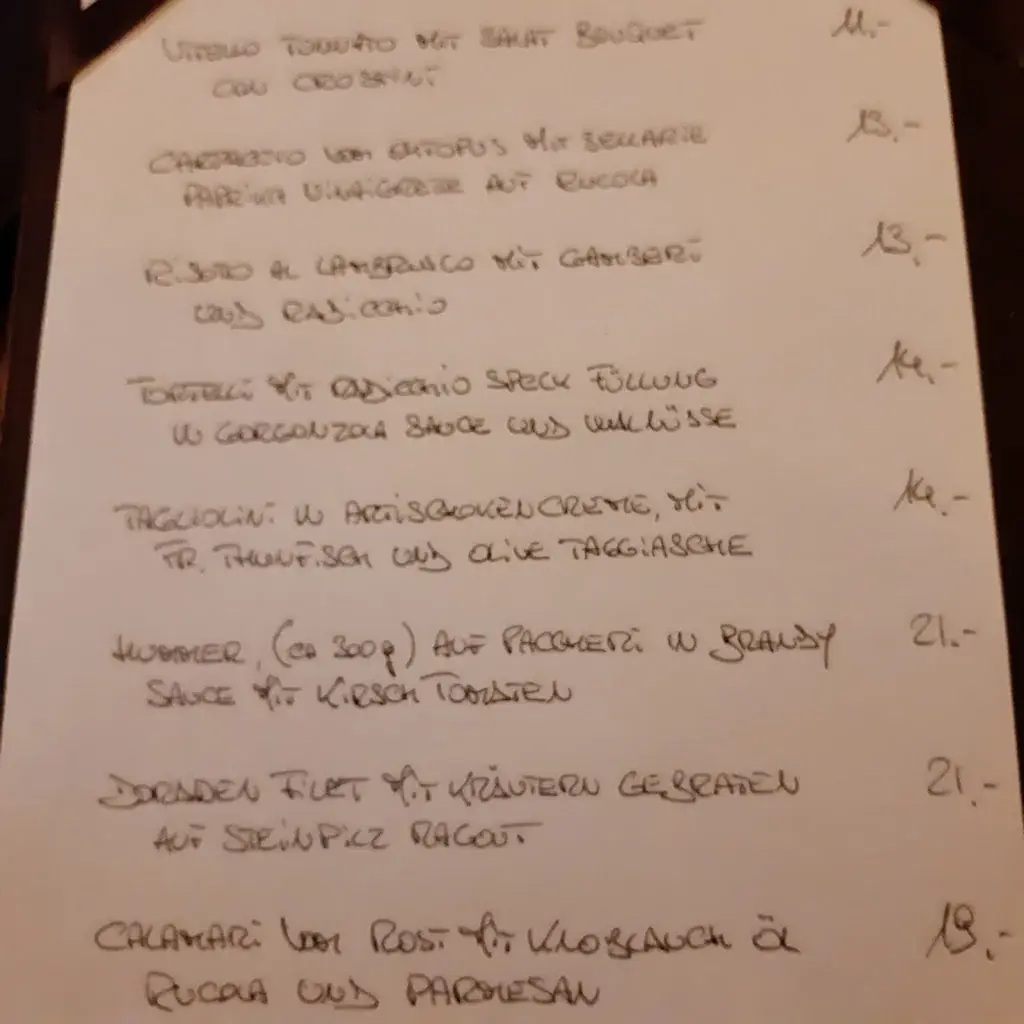 VITELLO TONNATO MIT SALAT BOUQUET 11.-
CON CROSTINI
CARPACCIO VOM OKTOPUS MIT SELLERIE 13.-
PAPRIKA VINAIGRETTE AUF RUCOLA
RISOTTO AL LAMBRUSCO MIT GAMBERI 13.-
UND RADICCHIO
TORTELLI MIT RADICCHIO SPECK FÜLLUNG 14.-
IN GORGONZOLA SAUCE UND WALNÜSSE
TAGLIOLINI IN ARTISCHOKENCREME, MIT 14.-
FR. THUNFISCH UND OLIVE TAGGIASCHE
HUMMER, (CA 300g) AUF PACCHERI IN BRANDY 21.-
SAUCE MIT KIRSCH TOMATEN
DORADEN FILET MIT KRÄUTERN GEBRATEN 21.-
AUF STEINPILZ RAGOUT
CALAMARI VOM ROST MIT KNOBLAUCH ÖL 19.-
RUCOLA UND PARMESAN